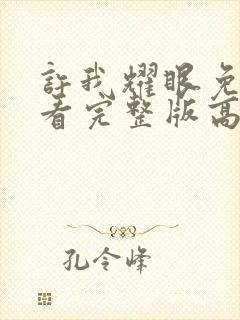 許我耀眼免
看完整版高
孔令峰